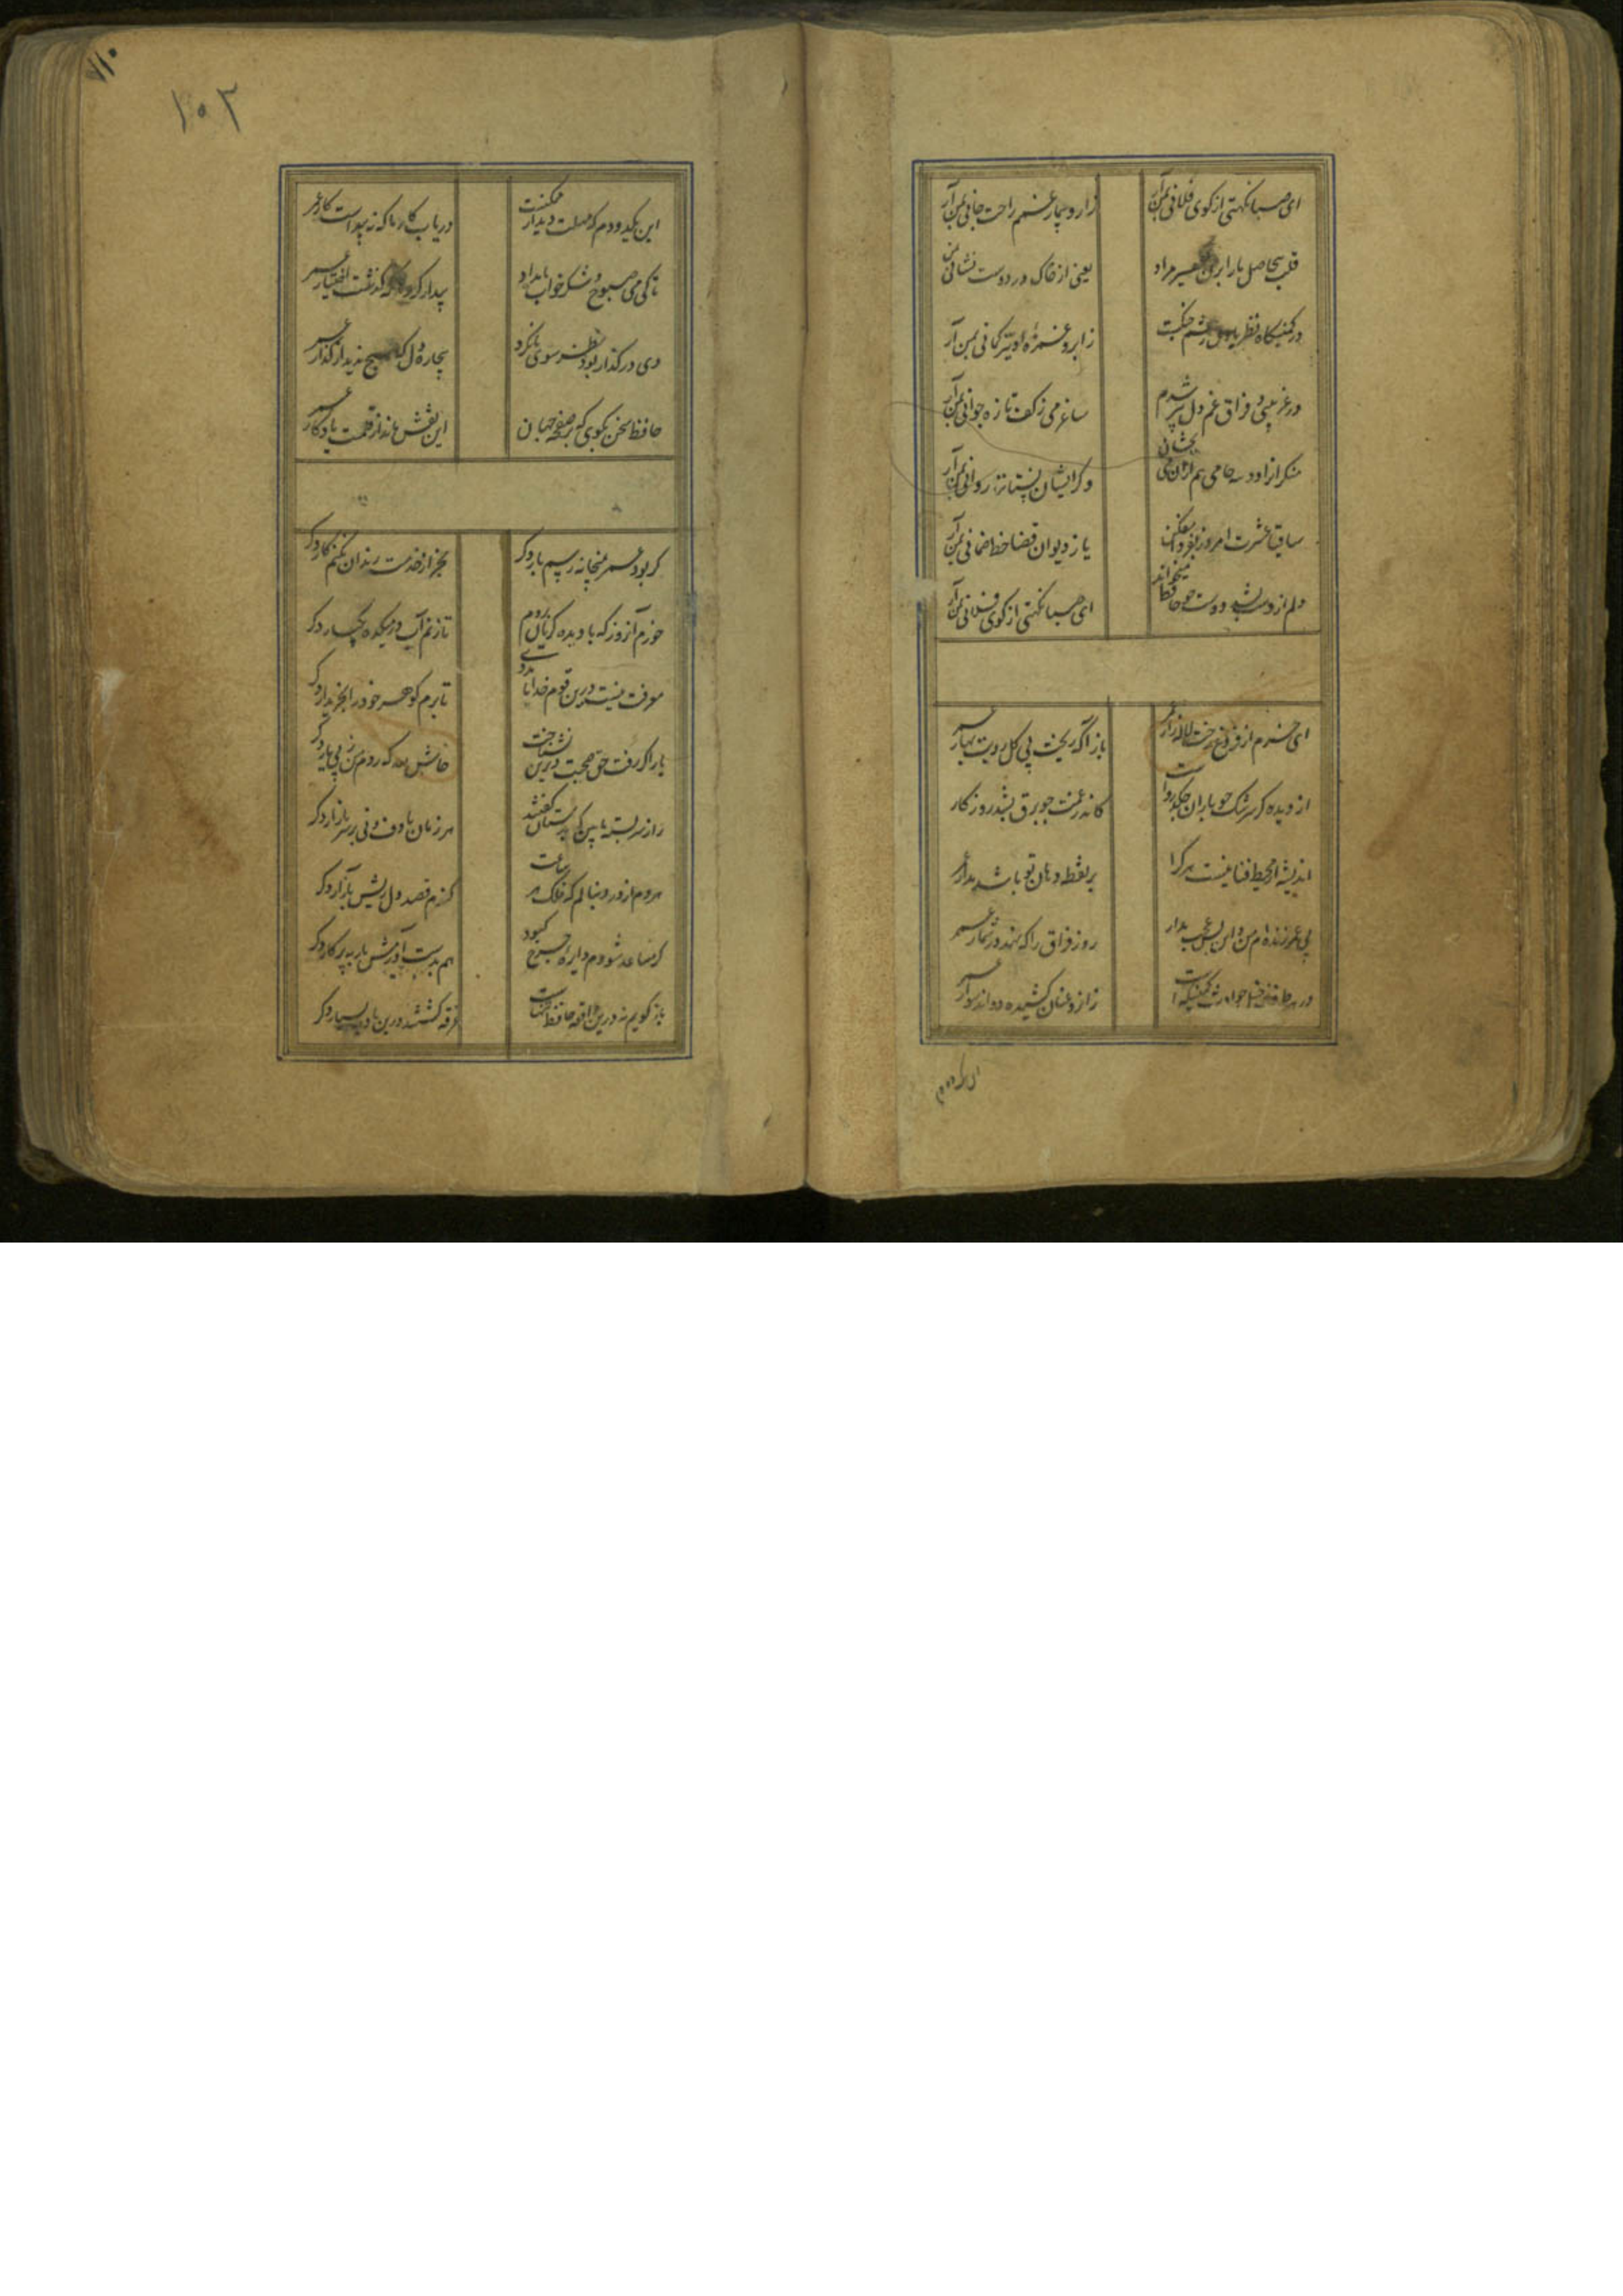 ای صبا نکهتی از کوی فلانی بمن آر
زار و بیمار غمم راحت جانی بمن آر
قلب بیحاصل ما را بزن اکسیر مراد
یعنی از خاک در دوست نشانی بمن آر
در کمینگاه نظر با دل خویشم جنگست
ز ابرو و غمزه او تیر و کمانی بمن آر
در غریبی و فراق و غم دل پیر شدم
ساغر می ز کف تازه جوانی بمن آر
منکرانرا دو سه جامی هم ازان می بچشان
وگر ایشان نستانند روانی بمن آر
ساقیا عشرت امروز بفردا مفکن
یا ز دیوان قضا خط امانی بمن آر
دلم از دست بشد دوش چو حافظ میخواند
ای صبا نکهتی از کوی فلانی بمن آر
ای خرم از فروغ رخت لاله‌زار عمر
باز آ که ریخت بی گل رویت بهار عمر
از دیده گر سرشک چو باران چکد رواست
کاندر غمت چو برق بشد روزگار
اندیشه از محیط فنا نیست هر کرا
بر نقطه دهان تو باشد مدار عمر
بی عمر زنده‌ام من و این بس عجب مدار
روز فراق را که نهد در شمار عمر
در هر طرف ز خیل حوادث کمینگهیست
زان رو عنان کشیده دواند سوار عمر
این یکدو دم که مهلت دیدار ممکنست
دریاب کار ما که نه پیداست کار عمر
تا کی می صبوح و شکر خواب بامداد
بیدار گرد هان که گذشت اختیار عمر
دی در گذار بود و نظر سوی ما نکرد
بیچاره دل که هیچ ندید از گذار عمر
حافظ سخن بگوی که بر صفحه جهان
این نقش ماند از قلمت یادگار عمر
۱۰۳
گر بود عمر بمیخانه رسم بار دگر
بجز از خدمت رندان نکنم کار دگر
خرم آن روز که با دیده گریان بروم
تا زنم آب در میکده یکبار دگر
معرفت نیست درین قوم خدایا مددی
تا برم گوهر خود را بخریدار دگر
یار اگر رفت و حق صحبت دیرین نشناخت
حاش لله که روم من ز پی یار دگر
راز سربسته ما بین که بدستان گفتند
هر زمان با دف و نی بر سر بازار دگر
هر دم از درد بنالم که فلک هر ساعت
کندم قصد دل ریش بآزار دگر
گر مساعد شودم دایره چرخ کبود
هم بدست آورمش باز به پرگار دگر
باز گویم نه درین واقعه حافظ تنهاست
غرقه گشتند درین بادیه بسیار دگر